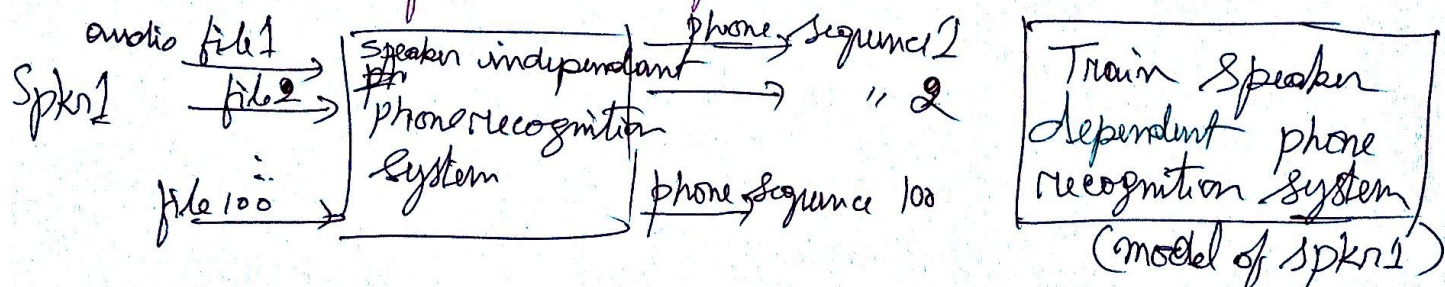 audio file1
Spkr1
file2
file 100
speaker independant
phone recognition
system
phone sequence 1
" 2
phone sequence 100
Train speaker
dependent phone
recognition system
(model of spkr1)